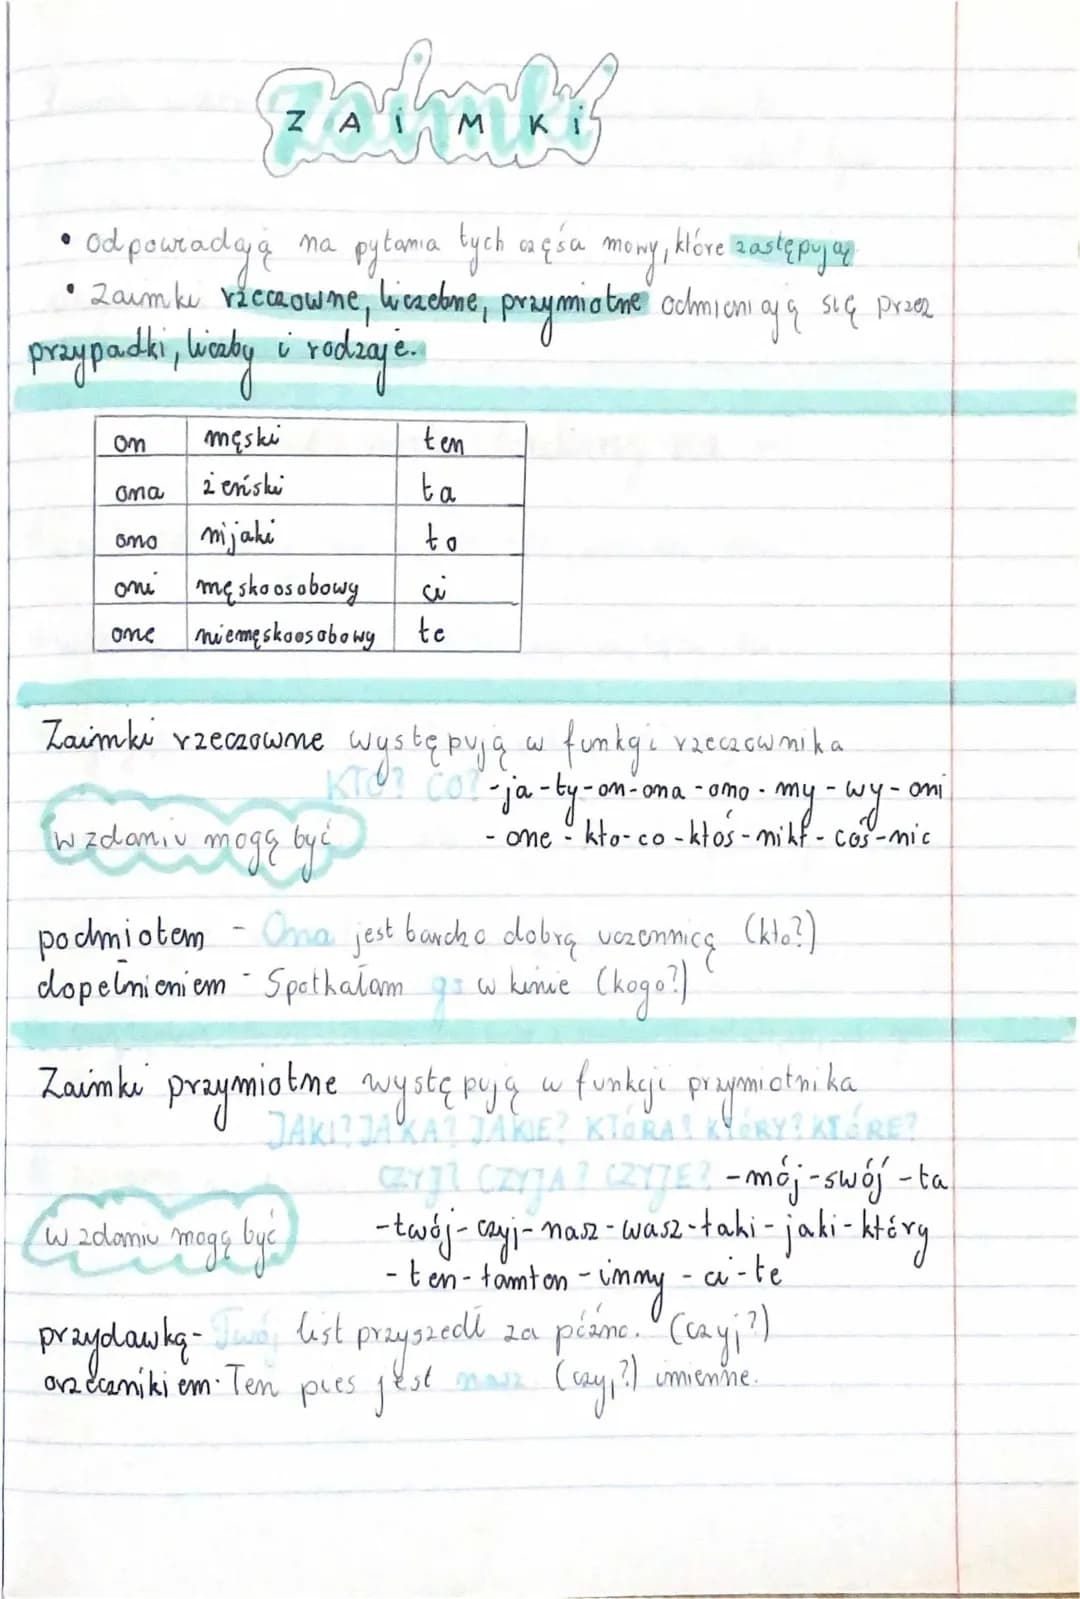 ZAiMKi
• Odpowiadają na pytania tych części mowy, które zastępują
• Zaimki rzeczowne, liczebne, przymiotne odmieniają się przez
przypadki, liczby i rodzaje.
on męski ten
ona żeński ta
ono nijaki to
oni męskoosobowy ci
one niemęskoosobowy te
Zaimki rzeczowne występują w funkcji rzeczownika
KTO? CO? -ja-ty-on-ona-ono-my-wy-oni
w zdaniu mogą być -one-kto-co-ktoś-nikt-coś-nic
podmiotem - Ona jest bardzo dobrą uczennicą (kto?)
dopełnieniem - Spotkałam go w kinie (kogo?)
Zaimki przymiotne występują w funkcji przymiotnika
JAKI? JAKA? JAKIE? KTÓRA? KTÓRY? KTÓRE?
CZYJ? CZYJA? CZYJE? -mój-swój-ta
w zdaniu mogą być -twój-czyj-nasz-wasz-taki-jaki-który
-ten-tamten-inny-ci-te
przydawką- Twój list przyszedł za późno. (czyj?)
orzecznikiem- Ten pies jest nasz (czyj?) imienne.